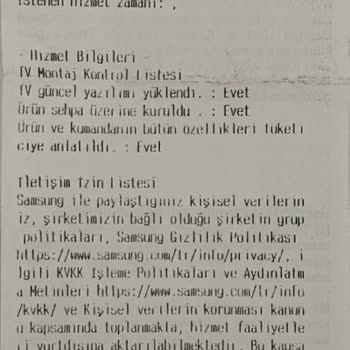 İstenen hizmet zamanı: ,
- Hizmet Bilgileri -
TV Montaj Kontrol Listesi
TV güncel yazılımı yüklendi. : Evet
Ürün sehpa üzerine kuruldu . : Evet
Ürün ve kumandanın bütün özellikleri tüketi
ciye anlatıldı. : Evet
İletişim İzin Listesi
Samsung ile paylaştığınız kişisel verilerin
iz, şirketimizin bağlı olduğu şirketin grup
politikaları, Samsung Gizlilik Politikası
https://www.samsung.com/tr/info/privacy/, i
lgili KVKK İşleme Politikaları ve Aydınlatm
a Metinleri https://www.samsung.com/tr/info
/kvkk/ ve Kişisel verilerin korunması kanun
u kapsamında toplanmakta, hizmet faaliyetle
ri yurtdışına aktarılabilmektedir. Bu kapsa